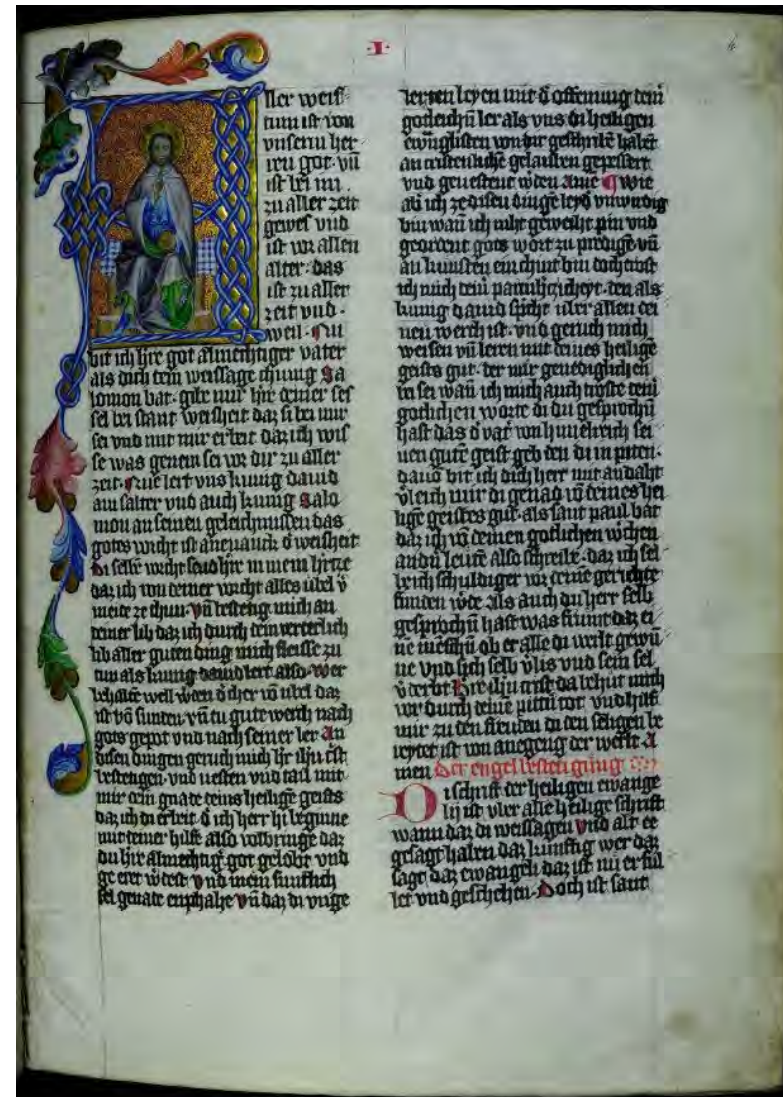 ·I·
ller weiſ
tum iſt von
vnſerm her
ren got · vn̄
iſt bei im .
zu aller zeit
geweſ vnd
iſt vor allen
alter · das
iſt zu aller
zeit vnd ·
weil · Nu
bit ich h're got almechtiger vater
als dich dem weiſſage chunig Sa
lomon bat · gibe mir h're deiner ſeſ
ſel bei ſtant weiſheit daz ſi bei mir
ſei vnd mit mir erbeit daz ich wiſ
ſe was genem ſei vor dir zu aller
zeit · leit vns kunig dauid
am ſalter vnd auch kunig Salo
mon an ſeinen geleichnuſſen das
gotes vorcht iſt anevanck d' weiſheit
Di ſelbē vorcht ſend h're in mein h'rtze
daz ich von deiner vorcht alles ubel v'
meide ze thun · vn̄ beſtetig mich an
deiner lib daz ich durch dein veterlich
lib aller guten ding mich fleiſſe zu
tun als kunig dauid lert alſo · wer
behaltē well w'den d' cher vō ubel daz
iſt vō ſunden · vn̄ tu gute werch nach
gots gepot vnd nach ſeiner ler An
diſen dingen geruch mich h'r ih'u c'ſt
beſtetigen · vnd veſten vnd tail mit
mir dein gnade deins heiligē geiſts
daz ich di erbeit d' ich herr hi beginne
mit deiner hilff alſo volbringe daz
du h're almechtig' got gelobt vnd
ge eret w'deſt · vnd mein ſuntlich
ſel genade enphahe vn̄ daz di vnge
lerten leyen mit d' offenung dem
gotleichn̄ ler als vns di heiligen
ewn̄gliſten von dir geſchribē habēt
an criſtenlichē gelauben gepeſſert
vnd geueſtent w'den amē ¶ Wie
ab ich ze diſen dingē leyd' vnwirdig
bin wan̄ ich niht geweiht pin vnd
geordent gots wort zu predigē vn̄
an kunſten ein chint bin doch troſt
ich mich dein̄ parmh'czicheyt · den als
kunig dauid ſp'cht uber allen dei
nen werch iſt · vnd geruch mich
weiſen vn̄ leren mit deines heiligē
geiſts gut · der mir genediglichen
bi ſei wan̄ ich mich auch troſte dem̄
gotlichen worte di du geſprochn̄
haſt das d' vat' von himelreich ſei
nen gutē geiſt geb den di in piten ·
dauō bit ich dich herr mit andaht
v'leich mir di genad vō deines hei
ligē geiſtes gut als ſant paul bat
daz ich vō deinen gotlichen w'chen
alſo ſchreibe · daz ich ſel
b' ich ſchuldiger vor deinē gerichte
funden w'de als auch du herr ſelb
geſprochn̄ haſt was frumt daz ei
nē mēſchn̄ ob er alle di werlt gewū
ne vnd ſich ſelb v'lis vnd ſein ſel
v'derbt H're ih'u criſt da behut mich
vor durch deinē pittn̄ tot · vnd hilf
mir zu den freuden di den ſeligen be
reytet iſt von anegeng der werlt · A
men Der engel beſteti gung
Di ſchrift der heiligen ewange
lij iſt vber alle heilige ſchrift
wann daz di weiſſagen vnd alt ee
geſagt haben daz kunftig wer daz
ſagt daz ewangeli daz iſt nu erful
let vnd geſchehen · Doch iſt ſant